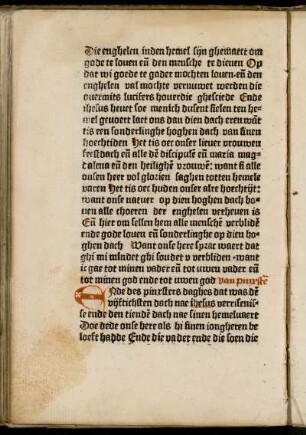 Die enghelen inden hemel sijn ghemaect om
gode te louen eñ den mensche te dienen Op
dat wi goede te gader mochten louen eñ den
enghelen val mochte vernuwet werden die
ouermits lucifers houerdie ghesciede Ende
ihesus heuet soe menich dusent sielen ten he=
mel geuoert laet ons dan dien dach eren wãt
tis een sonderlinghe hoghen dach van sinen
hoechtiden Het tis oec onser lieuer vrouwen
feestdach eñ alle dẽ discipulẽ eñ maria mag=
dalena eñ den heilighẽ vrouwẽ want si alle
dusen heer vol glorien saghen totten hemele
varen Het tis oec huden onser alre hoechtijt:
want onse natuer op dien hoghen dach bo=
uen alle choeren der enghelen verheuen is
Eñ hier om sellen hem alle menschẽ verblidẽ
ende gode louen eñ sonderlinghe op dien ho=
ghen dach Want onse here sprac waert dat
ghi mi mindet ghi soudet v verbliden want
ic gae tot minen vader eñ tot uwen vader eñ
tot minen god ende tot uwen god van pinxstẽ
Ende des pinxsters daghes dat was dẽ
vijftichsten dach nae ihesus verrisenis=
se ende den tiendẽ dach nae sinen hemeluaert
Doe dede onse here als hi sinen iongheren be
loeft hadde Ende die vader ende die soen die